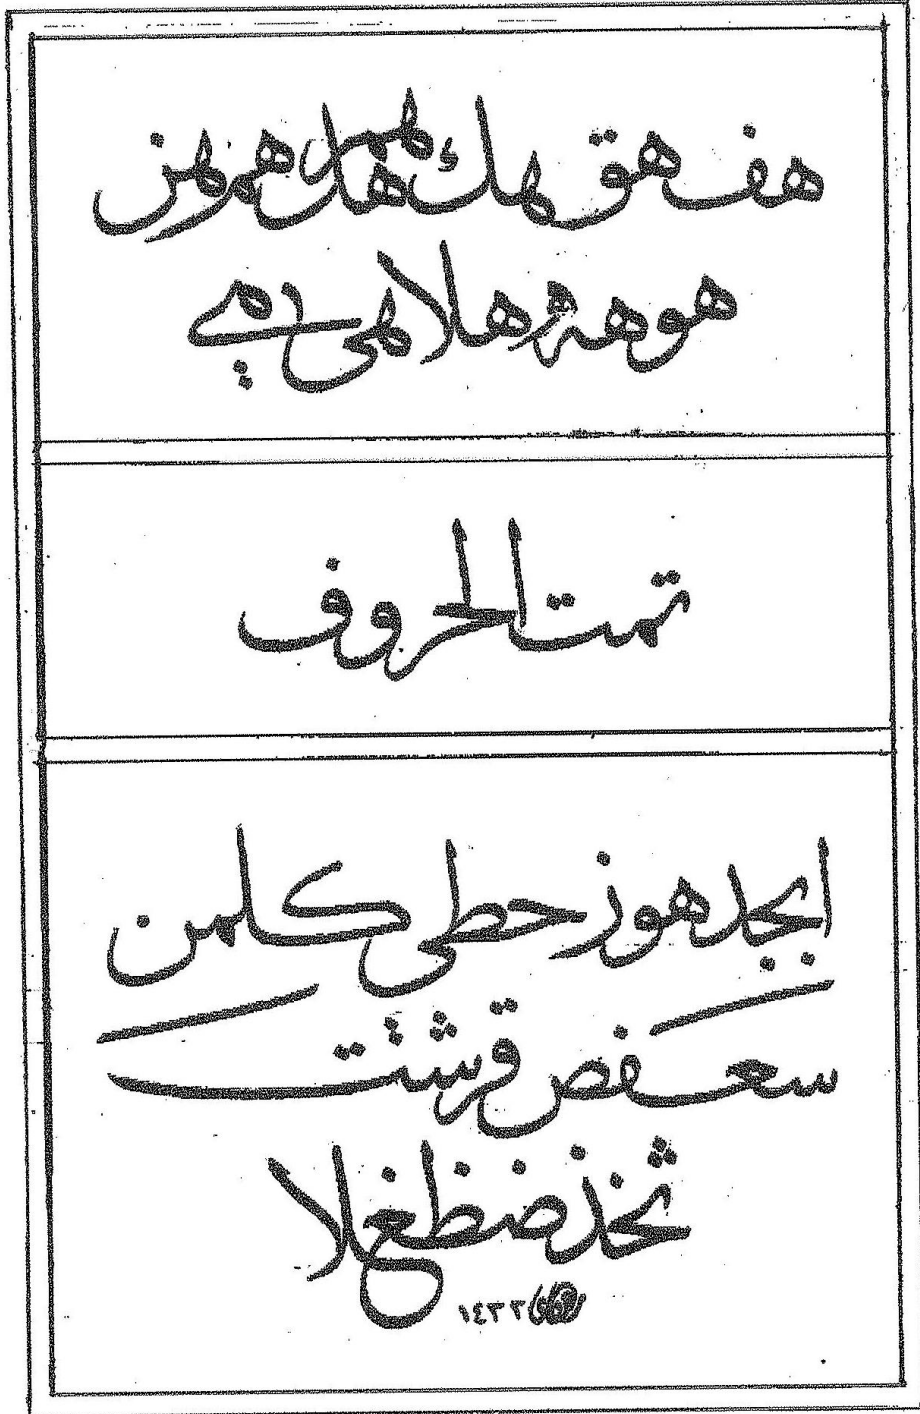 هف هق هك هل هم هم هن
هو هه هلا هى هے
تمت الحروف
ابجد هوز حطى كلمن
سعفص قرشت
ثخذ ضظغلا
١٤٣٣